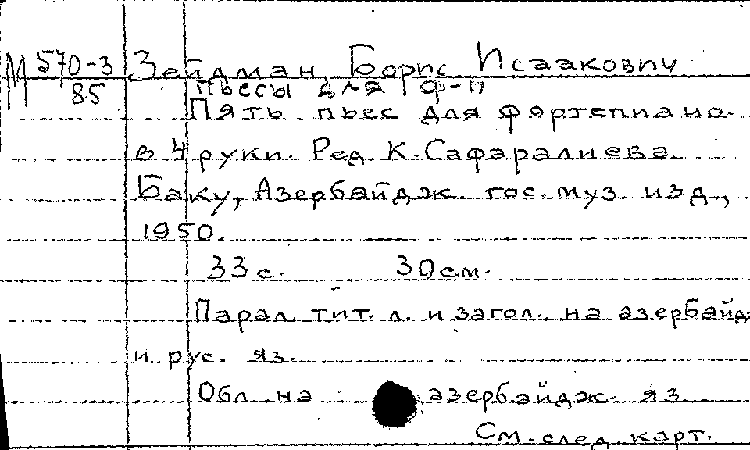 М 570-3 Зейдман, Борис Исаакович
85 Пьесы для ф-п
Пять пьес для фортепиано
в 4 руки. Ред. К. Сафаралиева
Баку, Азербайдж. гос. муз. изд.,
1950.
33 с. 30 см.
Парал. тит. л. и загол. на азербайдж
и рус. яз.
Обл. на азербайдж. яз.
См. след. карт.